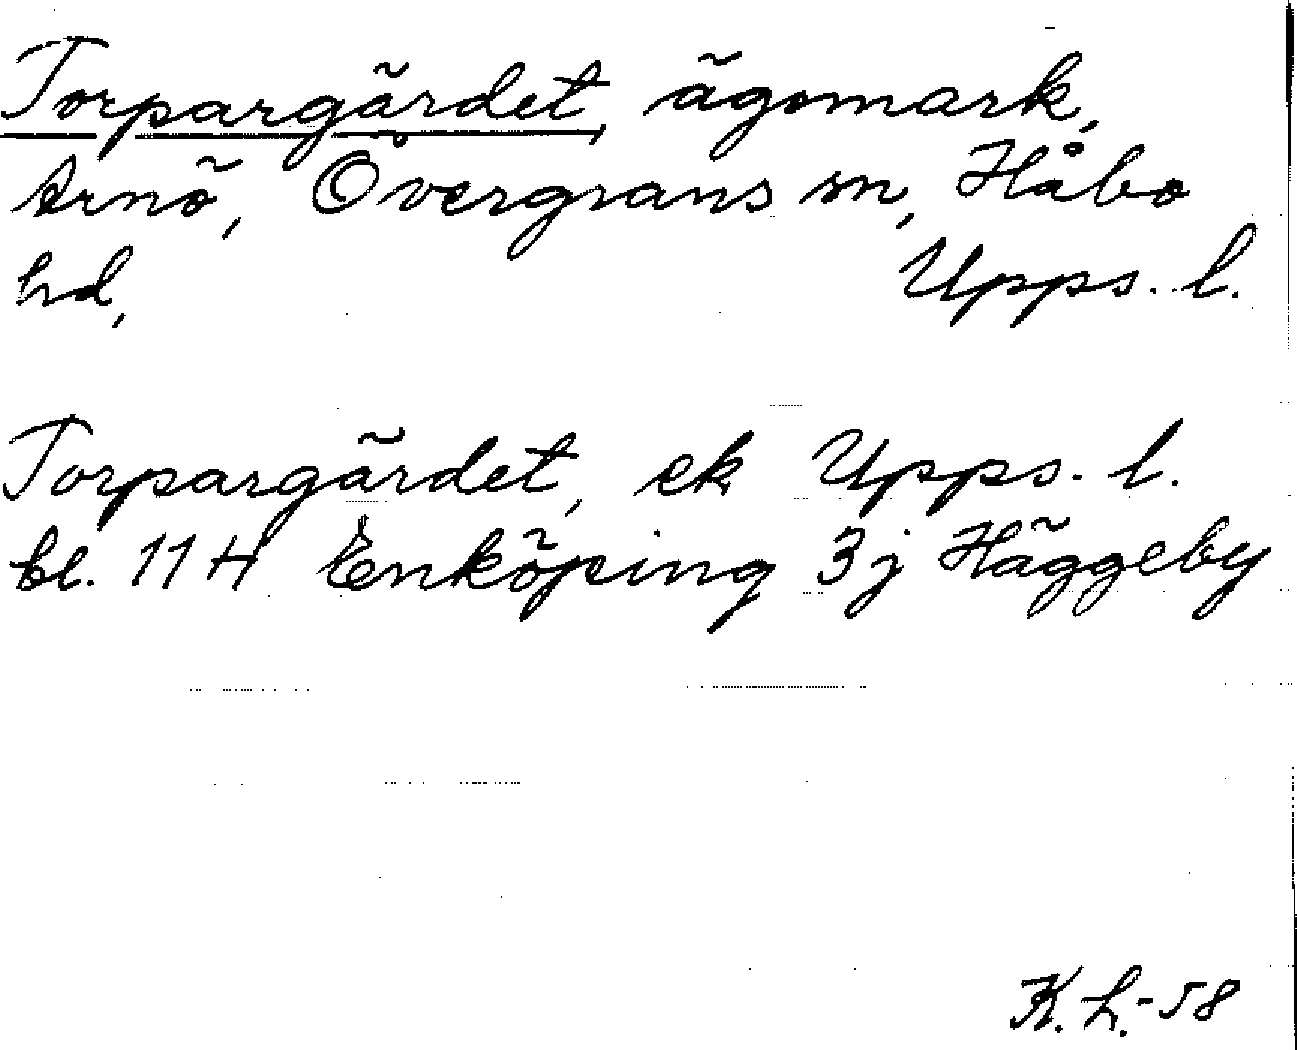 Torpargärdet, ägomark,
Arnö, Övergrans sn, Håbo
hd, Upps. l.
Torpargärdet, ek Upps. l.
bl. 114 Enköping 3j Häggeby
K. L. -58